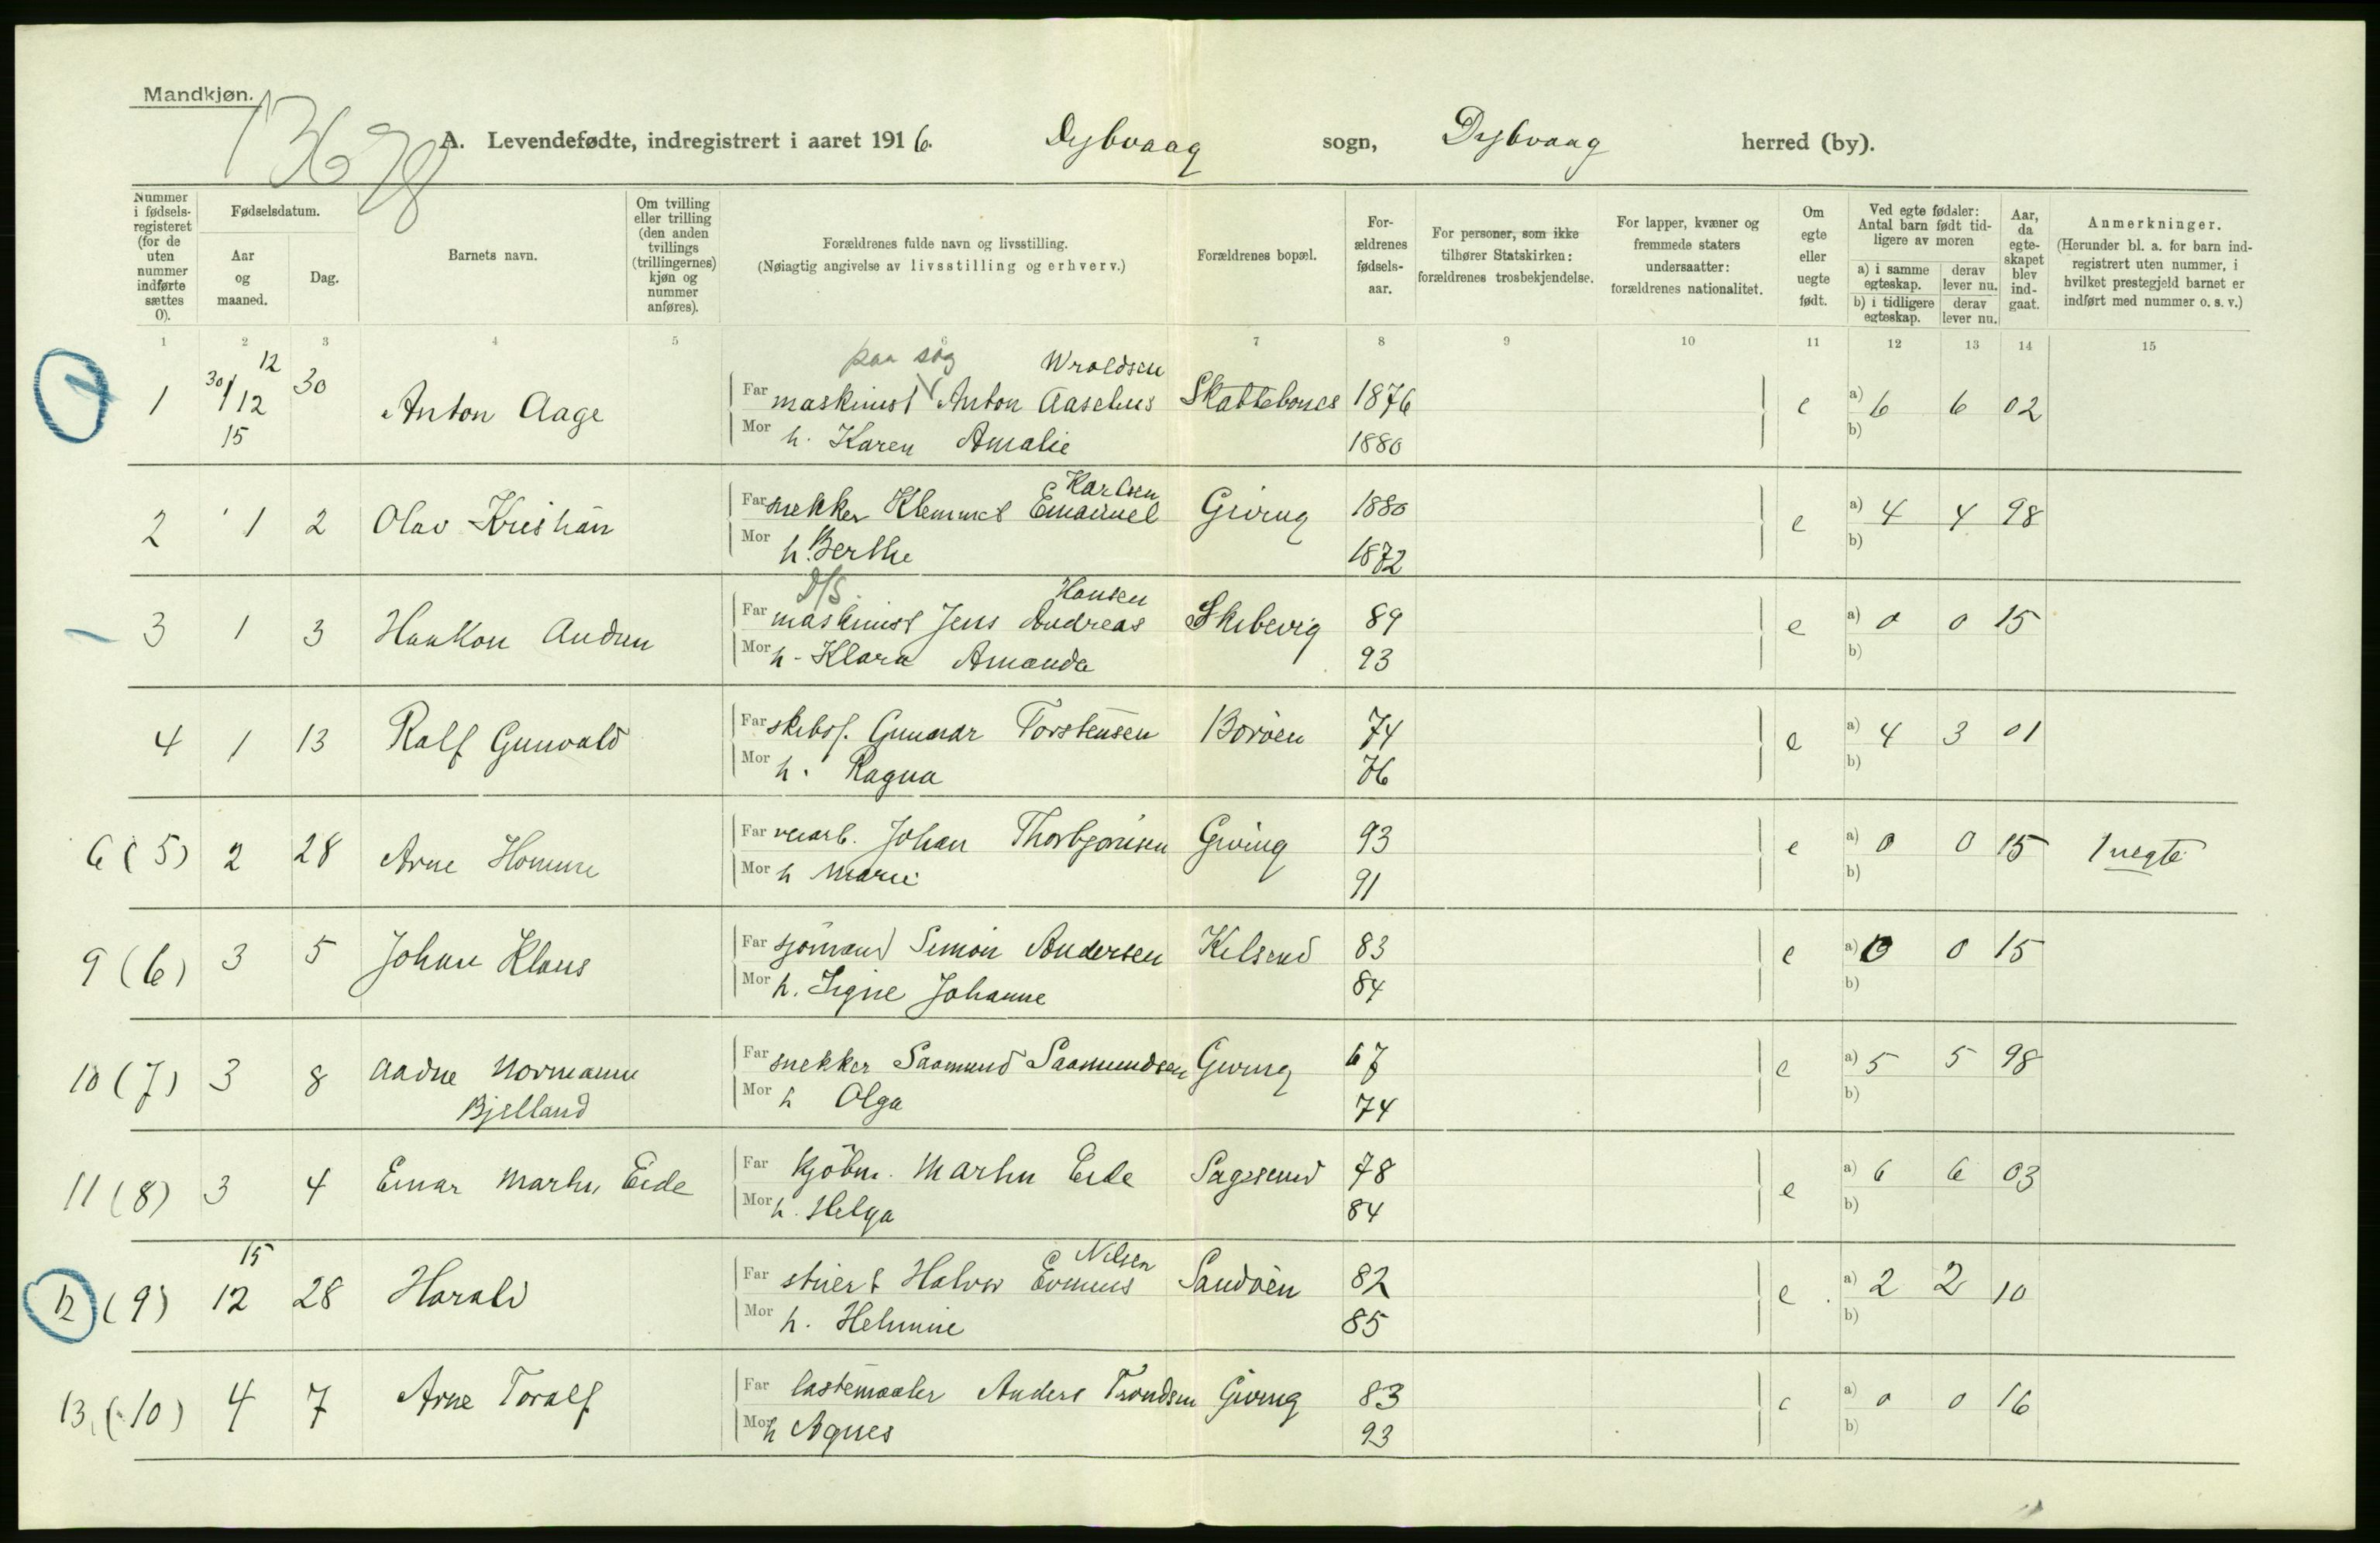 Mandkjøn.
1367
A. Levendefødte, indregistrert i aaret 1916. Dybvaag sogn, Dybvaag herred (by).
Nummer i fødsels-registeret (for de uten nummer indførte sættes 0).
Fødselsdatum.
Aar og maaned.
Dag.
Barnets navn.
Om tvilling eller trilling (den anden tvillings (trillingernes) kjøn og nummer anføres).
Forældrenes fulde navn og livsstilling.
(Nøiagtig angivelse av livsstilling og erhverv.)
Forældrenes bopæl.
For-ældrenes fødsels-aar.
For personer, som ikke tilhører Statskirken: forældrenes trosbekjendelse.
For lapper, kvæner og fremmede staters undersaatter: forældrenes nationalitet.
Om egte eller uegte født.
Ved egte fødsler: Antal barn født tid-ligere av moren
a) i samme egteskap. derav lever nu.
b) i tidligere egteskap. derav lever nu.
Aar, da egte-skapet blev ind-gaat.
Anmerkninger.
(Herunder bl. a. for barn ind-registrert uten nummer, i hvilket prestegjeld barnet er indført med nummer o. s. v.)
1 2 3 4 5 6 7 8 9 10 11 12 13 14 15
12 paa sag Wroldsen
1 30/12 30 Anton Aage Far maskinist Anton Aaselius Skattebones 1876 e a) 6 6 02
15 Mor h. Karen Amalie 1880 b)
Karlsen
2 1 2 Olav Kristian Far snekker Klemmet Emanuel Giving 1880 e a) 4 4 98
Mor h. Berthe 1872 b)
D/S. Hansen
3 1 3 Haakon Audun Far maskinist Jens Andreas Skibevig 89 e a) 0 0 15
Mor h. Klara Amanda 93 b)
4 1 13 Ralf Gunvald Far skibsf. Gunnar Torstensen Borøen 74 e a) 4 3 01
Mor h. Ragna 76 b)
6 (5) 2 28 Arne Homme Far veiarb. Johan Thorbjørnsen Giving 93 e a) 0 0 15 1 uegte
Mor h Marie 91 b)
9 (6) 3 5 Johan Klaus Far sjømand Simon Andersen Kilsund 83 e a) 0 0 15
Mor h. Signe Johanne 84 b)
10 (7) 3 8 Aadne Normann Far snekker Saamund Saamundsen Giving 67 e a) 5 5 98
Bjelland Mor h Olga 74 b)
11 (8) 3 4 Einar Martin Eide Far kjøbm. Martin Eide Sagesund 78 e a) 6 6 03
Mor h. Helga 84 b)
15 Nilsen
12 (9) 12 28 Harald Far stuert Halvor Evinus Sandøen 82 e a) 2 2 10
Mor h. Helmine 85 b)
13 (10) 4 7 Arne Toralf Far lastemaaler Anders Trondsen Giving 83 e a) 0 0 16
Mor h Agnes 93 b)